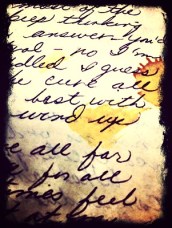 most of the
keep thinking
answer you'd
good - no I'm
dled I guess
be cure all
best with
wind up
e all far
for all
times feel